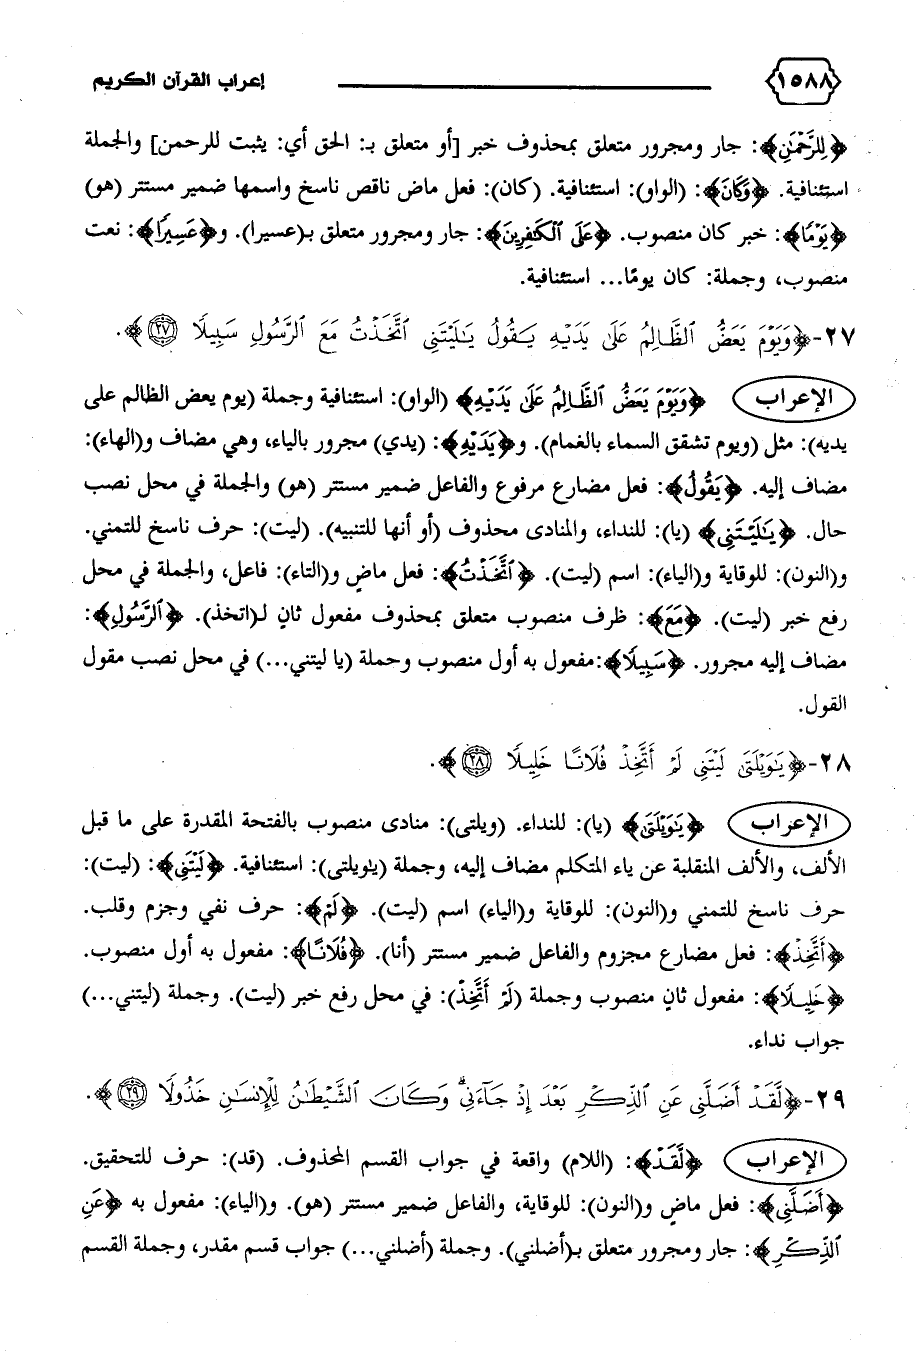 ١٥٨٨ إعراب القرآن الكريم
﴿لِلرَّحْمَٰنِ﴾: جار ومجرور متعلق بمحذوف خبر [أو متعلق بـ: الحق أي: يثبت للرحمن] والجملة
استئنافية. ﴿وَكَانَ﴾: (الواو): استئنافية. (كان): فعل ماض ناقص ناسخ واسمها ضمير مستتر (هو)
﴿يَوْمًا﴾: خبر كان منصوب. ﴿عَلَى ٱلْكَٰفِرِينَ﴾: جار ومجرور متعلق بـ(عسيرا). و﴿عَسِيرًا﴾: نعت
منصوب، وجملة: كان يومًا... استئنافية.
٢٧-﴿وَيَوْمَ يَعَضُّ ٱلظَّالِمُ عَلَىٰ يَدَيْهِ يَقُولُ يَٰلَيْتَنِى ٱتَّخَذْتُ مَعَ ٱلرَّسُولِ سَبِيلًا ٢٧﴾.
الإعراب ﴿وَيَوْمَ يَعَضُّ ٱلظَّالِمُ عَلَىٰ يَدَيْهِ﴾ (الواو): استئنافية وجملة (يوم يعض الظالم على
يديه): مثل (ويوم تشقق السماء بالغمام). و﴿يَدَيْهِ﴾: (يدي) مجرور بالياء، وهي مضاف و(الهاء):
مضاف إليه. ﴿يَقُولُ﴾: فعل مضارع مرفوع والفاعل ضمير مستتر (هو) والجملة في محل نصب
حال. ﴿يَٰلَيْتَنِى﴾ (يا): للنداء، والمنادى محذوف (أو أنها للتنبيه). (ليت): حرف ناسخ للتمني.
و(النون): للوقاية و(الياء): اسم (ليت). ﴿ٱتَّخَذْتُ﴾: فعل ماضٍ و(التاء): فاعل، والجملة في محل
رفع خبر (ليت). ﴿مَعَ﴾: ظرف منصوب متعلق بمحذوف مفعول ثانٍ لـ(اتخذ). ﴿ٱلرَّسُولِ﴾:
مضاف إليه مجرور. ﴿سَبِيلًا﴾:مفعول به أول منصوب وجملة (يا ليتني...) في محل نصب مقول
القول.
٢٨-﴿يَٰوَيْلَتَىٰ لَيْتَنِى لَمْ أَتَّخِذْ فُلَانًا خَلِيلًا ٢٨﴾.
الإعراب ﴿يَٰوَيْلَتَىٰ﴾ (يا): للنداء. (ويلتى): منادى منصوب بالفتحة المقدرة على ما قبل
الألف، والألف المنقلبة عن ياء المتكلم مضاف إليه، وجملة (يٰويلتى): استئنافية. ﴿لَيْتَنِى﴾: (ليت):
حرف ناسخ للتمني و(النون): للوقاية و(الياء) اسم (ليت). ﴿لَمْ﴾: حرف نفي وجزم وقلب.
﴿أَتَّخِذْ﴾: فعل مضارع مجزوم والفاعل ضمير مستتر (أنا). ﴿فُلَانًا﴾: مفعول به أول منصوب.
﴿خَلِيلًا﴾: مفعول ثانٍ منصوب وجملة (لَمْ أَتَّخِذْ): في محل رفع خبر (ليت). وجملة (ليتني...)
جواب نداء.
٢٩-﴿لَّقَدْ أَضَلَّنِى عَنِ ٱلذِّكْرِ بَعْدَ إِذْ جَآءَنِى ۗ وَكَانَ ٱلشَّيْطَٰنُ لِلْإِنسَٰنِ خَذُولًا ٢٩﴾.
الإعراب ﴿لَّقَدْ﴾: (اللام) واقعة في جواب القسم المحذوف. (قد): حرف للتحقيق.
﴿أَضَلَّنِى﴾: فعل ماضٍ و(النون): للوقاية، والفاعل ضمير مستتر (هو). و(الياء): مفعول به ﴿عَنِ
ٱلذِّكْرِ﴾: جار ومجرور متعلق بـ(أضلني). وجملة (أضلني...) جواب قسم مقدر، وجملة القسم